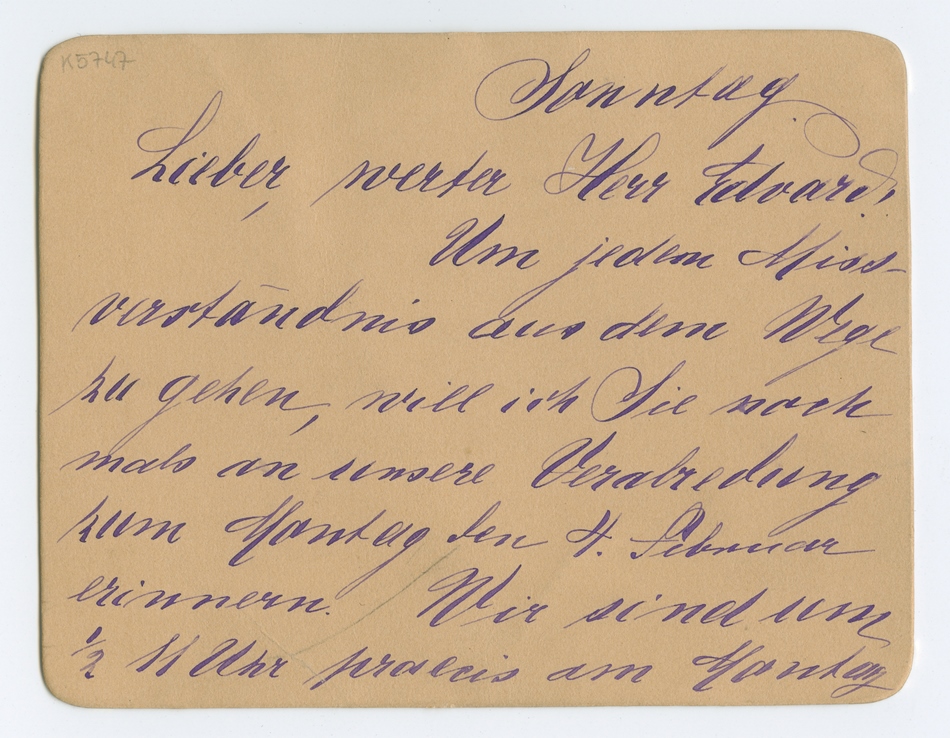 K5747
Sonntag.
Lieber, werter Herr Edvard!
Um jedem Miss-
verständnis aus dem Wege
zu gehen, will ich Sie noch
mals an unsere Verabredung
zum Montag den 4. Februar
erinnern. Wir sind um
½ 11 Uhr praecis am Montag